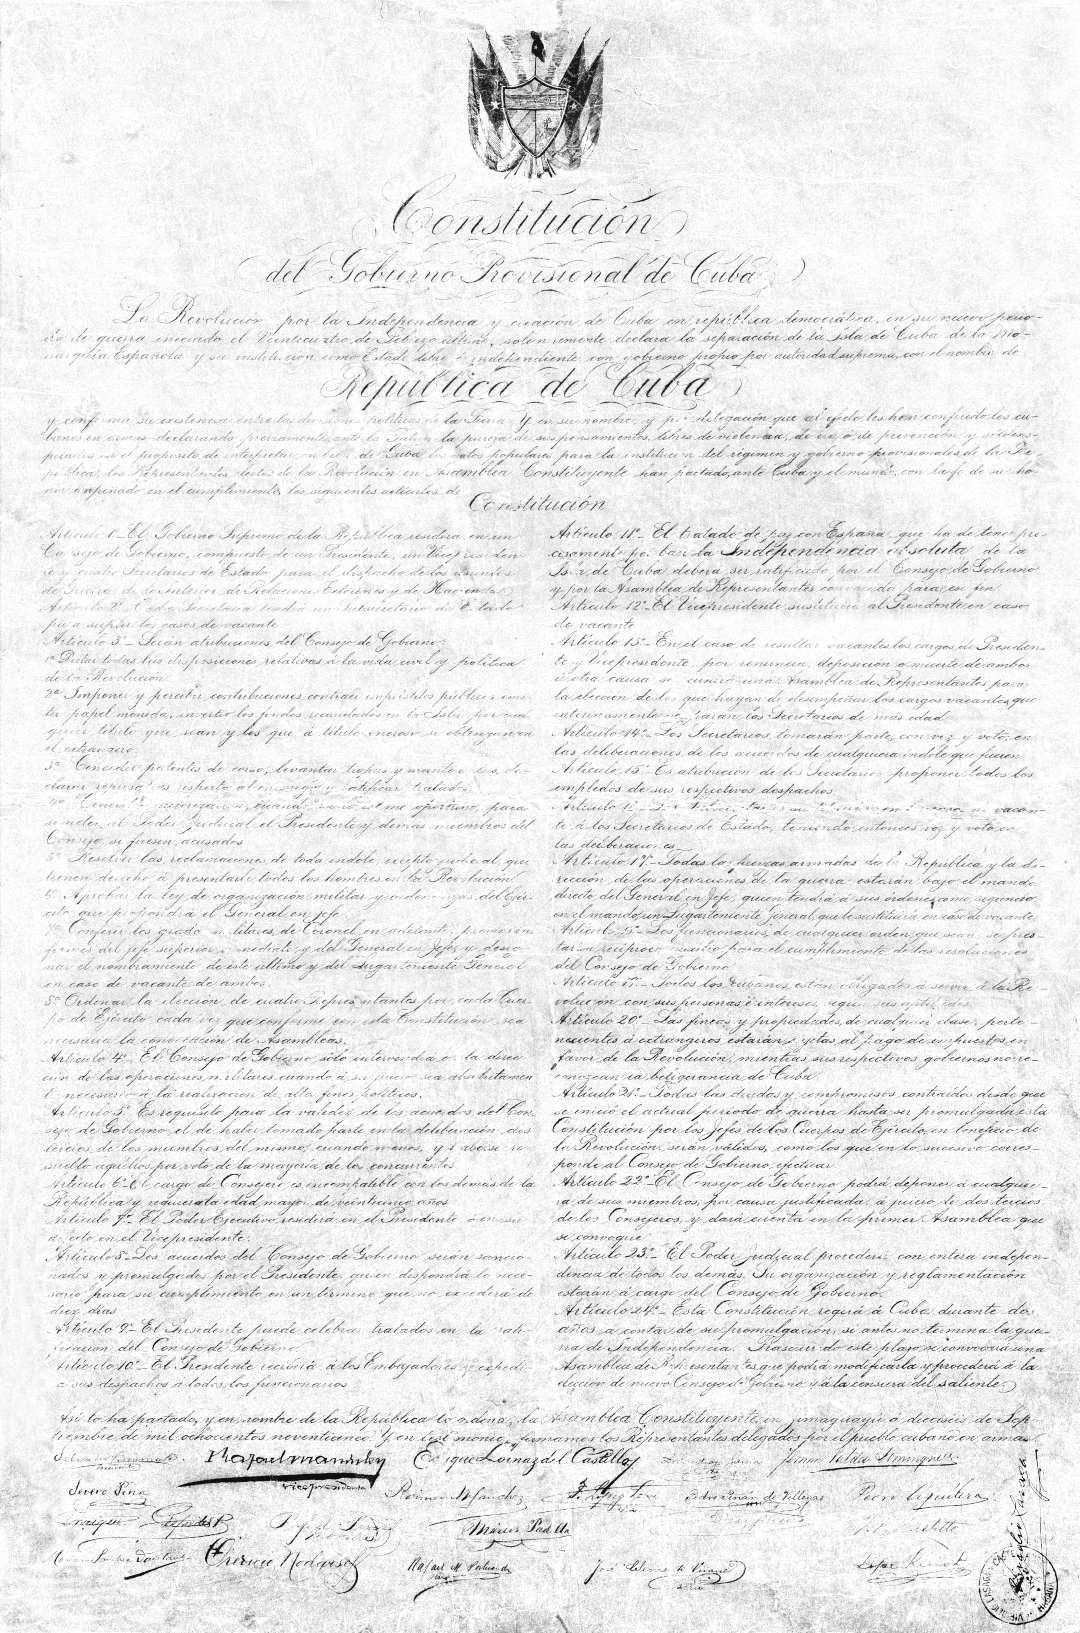 Constitución
del Gobierno Provisional de Cuba
La Revolución por la Independencia y creación de Cuba en república democrática, en su nuevo perio-
do de guerra iniciado el Veinticuatro de Febrero último, solemnemente declara la separación de la Isla de Cuba de la Mo-
narquía Española y su institución como Estado libre é independiente, con gobierno propio por autoridad suprema, con el nombre de
República de Cuba
y confirma su existencia entre las divisiones políticas de la Tierra. Y en su nombre, y por delegación que al efecto les han conferido los cu-
banos en armas, declarando previamente ante la Patria la pureza de sus pensamientos, libres de violencia, de ira, ó de prevención y
el propósito de interpretar de Cuba los votos populares para la institución del régimen y gobierno provisionales de la Re-
pública, los Representantes electos de la Revolución en Asamblea Constituyente han pactado, ante Cuba y el mundo, con la fé de su ho-
nor empeñado en el cumplimiento, los siguientes artículos de
Constitución
Artículo 1º El Gobierno Supremo de la República residirá en un
Consejo de Gobierno, compuesto de un Presidente, un Vicepresiden-
te y cuatro Secretarios de Estado para el despacho de los asuntos
de Guerra, de lo Interior, de Relaciones Exteriores y de Hacienda.
Artículo 2º Cada Secretario tendrá un Subsecretario de Estado
para suplir los casos de vacante
Artículo 3º Serán atribuciones del Consejo de Gobierno:
1ª Dictar todas las disposiciones relativas á la vida civil y política
de la Revolución
2ª Imponer y percibir contribuciones, contraer empréstitos públicos, emi-
tir papel moneda, invertir los fondos recaudados en la Isla, por cual-
quier título que sean y los que á título oneroso se obtengan en
el extrangero.
3ª Conceder patentes de corso, levantar tropas y mantenerlas, de-
clarar represalias respecto al enemigo y ratificar tratados
4ª Conceder autorización, cuando lo estime oportuno, para
someter al Poder judicial el Presidente y demás miembros del
Consejo, si fuesen acusados
5ª Resolver las reclamaciones de toda índole, excepto judicial, que
tienen derecho á presentarle todos los hombres en la Revolución
6ª Aprobar la ley de organización militar y ordenanzas del Ejér-
cito que propondrá el General en Jefe
7ª Conferir los grados militares, de Coronel en adelante, previos in-
formes del jefe superior inmediato y del General en Jefe, y desig-
nar el nombramiento de éste último y del Lugarteniente General
en caso de vacante de ambos.
8ª Ordenar la elección de cuatro Representantes por cada Cuer-
po de Ejército cada vez que, conforme con esta Constitución, sea
necesaria la convocación de Asambleas.
Artículo 4º El Consejo de Gobierno sólo intervendrá en la direc-
ción de las operaciones militares, cuando á su juicio sea absolutamen-
te necesario á la realización de altos fines políticos.
Artículo 5º Es requisito para la validez de los acuerdos del Con-
sejo de Gobierno, el de haber tomado parte en la deliberación, dos
tercios de los miembros del mismo, cuando menos, y haberse re-
suelto aquellos por voto de la mayoría de los concurrentes
Artículo 6º El cargo de Consejero es incompatible con los demás de la
República y requiere la edad mayor de veinticinco años
Artículo 7º El Poder Ejecutivo residirá en el Presidente o en su de-
fecto en el Vicepresidente.
Artículo 8º Los acuerdos del Consejo de Gobierno serán sancio-
nados y promulgados por el Presidente, quien dispondrá lo nece-
sario para su cumplimiento en un término que no excederá de
diez días
Artículo 9º El Presidente puede celebrar tratados con la rati-
ficación del Consejo de Gobierno
Artículo 10º El Presidente recibirá á los Embajadores y expedi-
rá sus despachos á todos los funcionarios
Artículo 11º El tratado de paz con España, que ha de tener pre-
cisamente por base la Independencia absoluta de la
Isla de Cuba, deberá ser ratificado por el Consejo de Gobierno
y por la Asamblea de Representantes convocada para ese fin
Artículo 12º El Vicepresidente sustituirá al Presidente en caso
de vacante
Artículo 13º En el caso de resultar vacantes los cargos de Presiden-
te y Vicepresidente, por renuncia, deposición o muerte de ambos
ú otra causa se reunirá una Asamblea de Representantes para
la elección de los que hayan de desempeñar los cargos vacantes, que
interinamente ocuparán los Secretarios de más edad
Artículo 14º Los Secretarios tomarán parte, con voz y voto, en
las deliberaciones de los acuerdos de cualquiera índole que fueren
Artículo 15º Es atribución de los Secretarios proponer todos los
empleos de sus respectivos despachos
Artículo 16º vacan-
te á los Secretarios de Estado, teniendo entonces voz y voto en
las deliberaciones
Artículo 17º Todas las fuerzas armadas de la República y la di-
rección de las operaciones de la guerra estarán bajo el mando
directo del General en Jefe, quien tendrá á sus órdenes como segundo
en el mando, un Lugarteniente General, que le sustituirá en caso de vacante.
Artículo 18º Los funcionarios de cualquier orden que sean, se pres-
tarán recíproco auxilio para el cumplimiento de las resoluciones
del Consejo de Gobierno
Artículo 19º Todos los cubanos están obligados á servir á la Re-
volución con sus personas é intereses, según sus aptitudes
Artículo 20º Las fincas y propiedades de cualquier clase, perte-
necientes á extrangeros estarán sujetas al pago de impuestos en
favor de la Revolución, mientras sus respectivos gobiernos no re-
conozcan la beligerancia de Cuba
Artículo 21º Todas las deudas y compromisos contraídos desde que
se inició el actual período de guerra hasta ser promulgada esta
Constitución por los Jefes de los Cuerpos de Ejército, en beneficio de
la Revolución, serán válidos, como los que en lo sucesivo corres-
ponde al Consejo de Gobierno efectuar
Artículo 22º El Consejo de Gobierno podrá deponer á cualquie-
ra de sus miembros, por causa justificada, á juicio de dos tercios
de los Consejeros, y dará cuenta en la primer Asamblea que
se convoque
Artículo 23º El Poder judicial procederá con entera indepen-
dencia de todos los demás. Su organización y reglamentación
estarán á cargo del Consejo de Gobierno.
Artículo 24º Esta Constitución regirá á Cuba durante dos
años á contar de su promulgación, si antes no termina la gue-
rra de Independencia. Trascurrido este plazo se convocará una
Asamblea de Representantes que podrá modificarla y procederá á la
elección de nuevo Consejo de Gobierno y á la censura del saliente.
Así lo ha pactado, y en nombre de la República lo ordena, la Asamblea Constituyente en Jimaguayú á dieciséis de Sep-
tiembre de mil ochocientos noventicinco. Y en testimonio firmamos los Representantes delegados por el pueblo cubano en armas
Rafael Manduley Enrique Loinaz del Castillo
Vicepresidente
Severo Pina Pedro Piñán de Villegas
Marcos Padilla
Orencio Nodarse
Rafael M. Portuondo